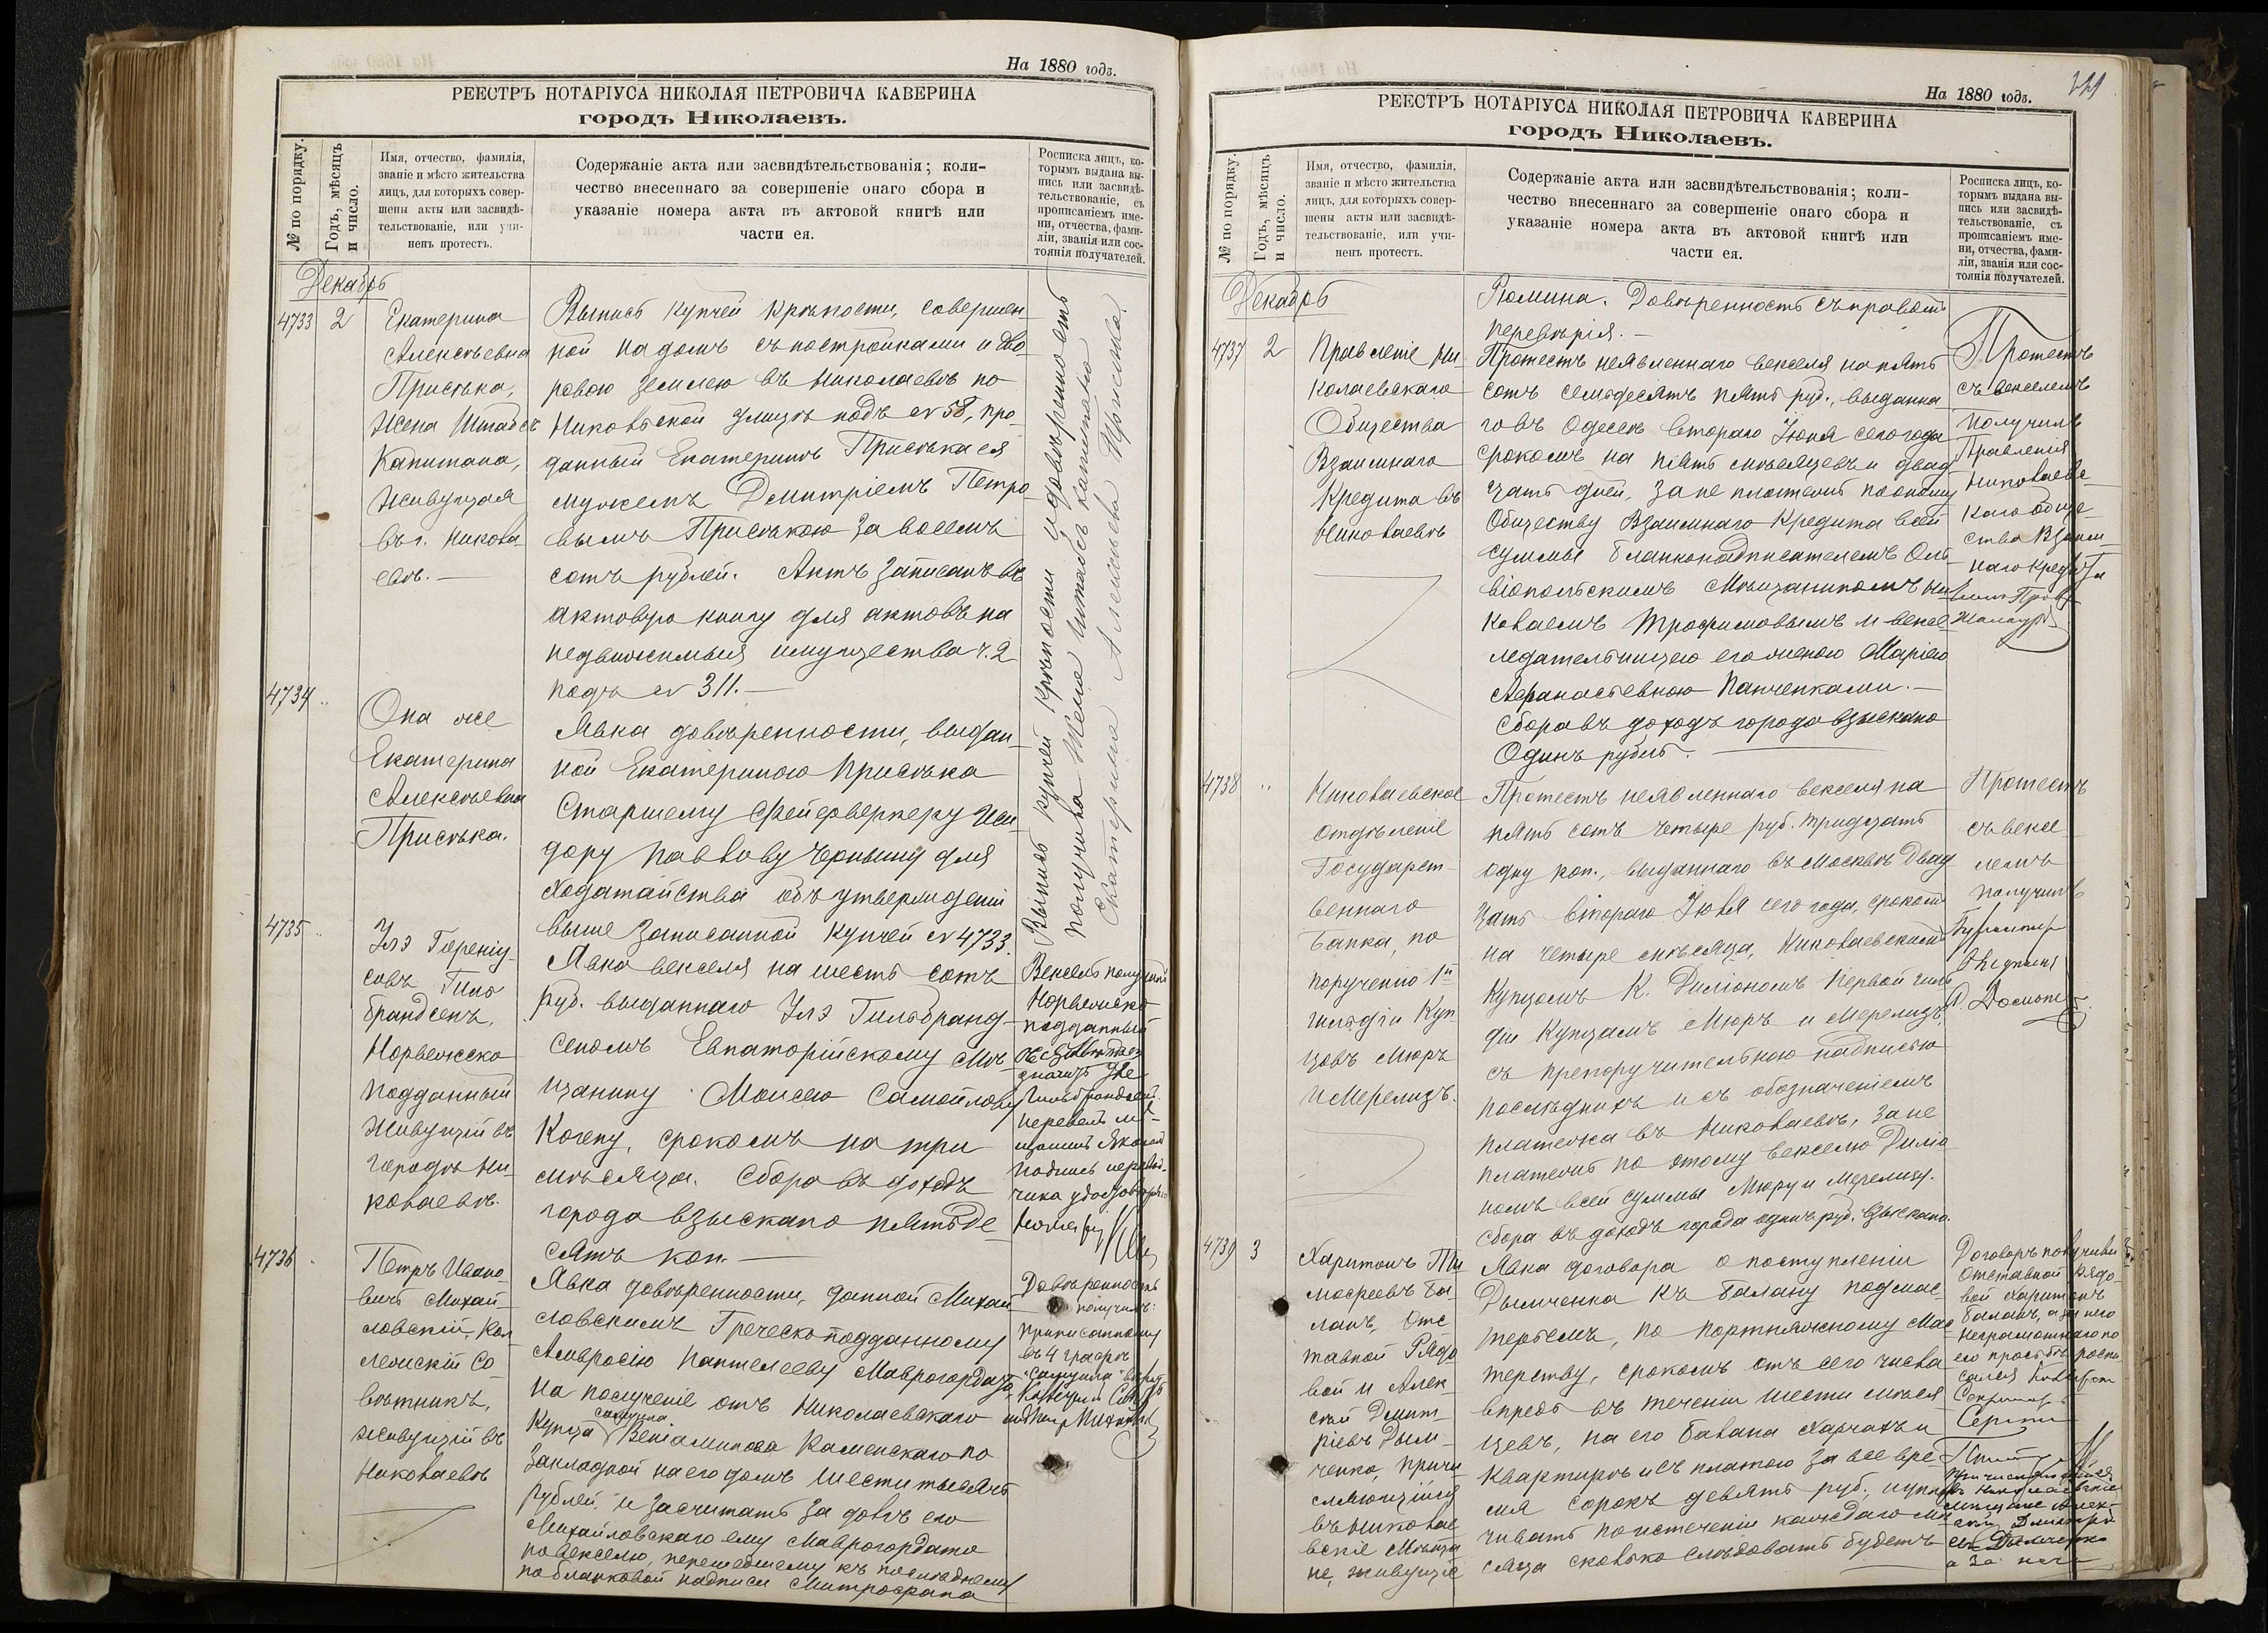 На 1880 годъ.
РЕЕСТРЪ НОТАРІУСА НИКОЛАЯ ПЕТРОВИЧА КАВЕРИНА
городъ Николаевъ.
№ по порядку.
Годъ, мѣсяцъ
и число.
Имя, отчество, фамилія,
званіе и мѣсто жительства
лицъ, для которыхъ совер-
шены акты или засвидѣ-
тельствованіе, или учи-
ненъ протестъ.
Содержаніе акта или засвидѣтельствованія; коли-
чество внесеннаго за совершеніе онаго сбора и
указаніе номера акта въ актовой книгѣ или
части ея.
Росписка лицъ, ко-
торымъ выдана вы-
пись или засвидѣ-
тельствованіе, съ
прописаніемъ име-
ни, отчества, фами-
ліи, званія или сос-
тоянія получателей.
Декабрь
4733 2
Екатерина
Алексѣевна
Присѣка,
Жена Штабсъ
Капитана,
живущая
въ г. Никола-
евѣ.—
Выпись купчей крѣпости, совершен
ной на домъ съ постройками и дво-
ровою землею въ Николаевѣ по
Никольской улицѣ подъ № 58, про-
данный Екатеринѣ Присѣка ея
мужемъ Дмитріемъ Петро-
вымъ Присѣкою за восемь
сотъ рублей. Актъ записанъ въ
актовую книгу для актовъ на
недвижимыя имущества ч. 2
подъ № 311.—
Выпись купчей крѣпости и довѣренность
получила Жена штабсъ капитана
Екатерина Алексѣева Присѣка.
4734 "
Она же
Екатерина
Алексѣевна
Присѣка.
Явка довѣренности, выдан-
ной Екатериною Присѣка
Старшему Фейерверкеру Иси-
дору Павлову Чернышу для
ходатайства объ утвержденіи
выше записанной купчей № 4733.
4735 "
Улэ Гереніу-
совъ Гиль-
брандсенъ,
Норвежско
подданный
живущій въ
городѣ Ни-
колаевѣ.
Явка векселя на шесть сотъ
руб. выданнаго Улэ Гильбранд-
сеномъ Евпаторійскому Мѣ-
щанину Моисею Самойлову
Когену, срокомъ на три
мѣсяца. Сбора въ доходъ
города взыскано пятьде
сятъ коп.—
Вексель получилъ
Норвежско
подданный
Гильбрандсенъ.
4736 "
Петръ Ивано-
вичъ Михай-
ловскій, Кол-
лежскій Со-
вѣтникъ,
живущій въ
Николаевѣ
Явка довѣренности, данной Михай-
ловскимъ Греческоподданному
Амвросію Пантелееву Маврогордато
на полученіе отъ Николаевскаго
купца Самуила Веніаминова Каменскаго по
закладной на его домъ шести тысячъ
рублей и засчитать за долгъ его
Михайловскаго ему Маврогордато
по векселю, перешедшему къ послѣднему
по бланковой надписи Митрофана
Довѣренность
получилъ:
приписанному
въ 4 графѣ
"Самуила" вѣрить
На 1880 годъ.
РЕЕСТРЪ НОТАРІУСА НИКОЛАЯ ПЕТРОВИЧА КАВЕРИНА
городъ Николаевъ.
№ по порядку.
Годъ, мѣсяцъ
и число.
Имя, отчество, фамилія,
званіе и мѣсто жительства
лицъ, для которыхъ совер-
шены акты или засвидѣ-
тельствованіе, или учи-
ненъ протестъ.
Содержаніе акта или засвидѣтельствованія; коли-
чество внесеннаго за совершеніе онаго сбора и
указаніе номера акта въ актовой книгѣ или
части ея.
Росписка лицъ, ко-
торымъ выдана вы-
пись или засвидѣ-
тельствованіе, съ
прописаніемъ име-
ни, отчества, фами-
ліи, званія или сос-
тоянія получателей.
Декабрь
Рюмина. Довѣренность съ правомъ
перевѣрія.—
4737 2
Правленіе Ни-
колаевскаго
Общества
Взаимнаго
Кредита въ
Николаевѣ
Протестъ неявленнаго векселя на пять
сотъ семьдесятъ пять руб., выданна-
го въ Одессѣ втораго Іюня сего года
срокомъ на пять мѣсяцевъ и двад-
цать дней, за не платежъ по оному
Обществу Взаимнаго Кредита всей
суммы бланконадписателемъ Оль-
віопольскимъ Мѣщаниномъ Ни-
колаемъ Трофимовымъ и вексе-
ледательницею его женою Маріею
Афанасьевною Панченками.—
Сбора въ доходъ города взыскано
Одинъ рубль.
Протестъ
съ векселемъ
получилъ
Правленія
Николаевс-
каго Обще-
ства Взаим-
наго Кредита
4738 "
Николаевское
отдѣленіе
Государст-
веннаго
Банка, по
порученію 1й
гильдіи Куп-
цовъ Мюръ
и Мерелизъ.
Протестъ неявленнаго векселя на
пять сотъ четыре руб. тридцать
одну коп., выданнаго въ Москвѣ двад-
цать втораго Іюля сего года, срокомъ
на четыре мѣсяца, Николаевскимъ
Купцомъ К. Диліономъ первой гиль-
діи Купцамъ Мюръ и Мерелизъ,
съ препоручительною надписью
послѣднихъ и съ обозначеніемъ
платежа въ Николаевѣ, за не
платежъ по этому векселю Диліо-
номъ всей суммы Мюру и Мерелизу.
Сбора въ доходъ города одинъ руб. взыскано.
Протестъ
съ вексе-
лемъ
получилъ
4739 3
Харитонъ Ти-
мофеевъ Ба-
ланъ, Отс-
тавной Рядо-
вой и Алек-
сѣй Дмит-
ріевъ Дым-
ченко, причи-
сляющійся
въ Николае-
вскіе Мѣща-
не, живущіе
Явка договора о поступленіи
Дымченка къ Балану подмас-
терьемъ, по портняжному Мас-
терству, срокомъ отъ сего числа
впредь въ теченіи шести мѣся-
цевъ, на его Балана харчахъ и
квартирѣ и съ платою за все вре-
мя сорокъ девять руб., уплa-
чивать по истеченіи каждаго мѣ-
сяца сколько слѣдовать будетъ
Договоръ получили
Отставной Рядо-
вой Харитонъ
Баланъ, а за него
неграмотнаго по
его просьбѣ роспи-
сался
а за него